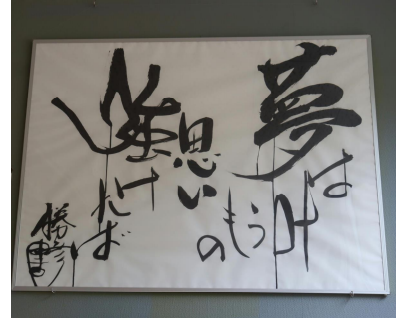 夢は叶
うもの
思い
強ければ
勝彦書